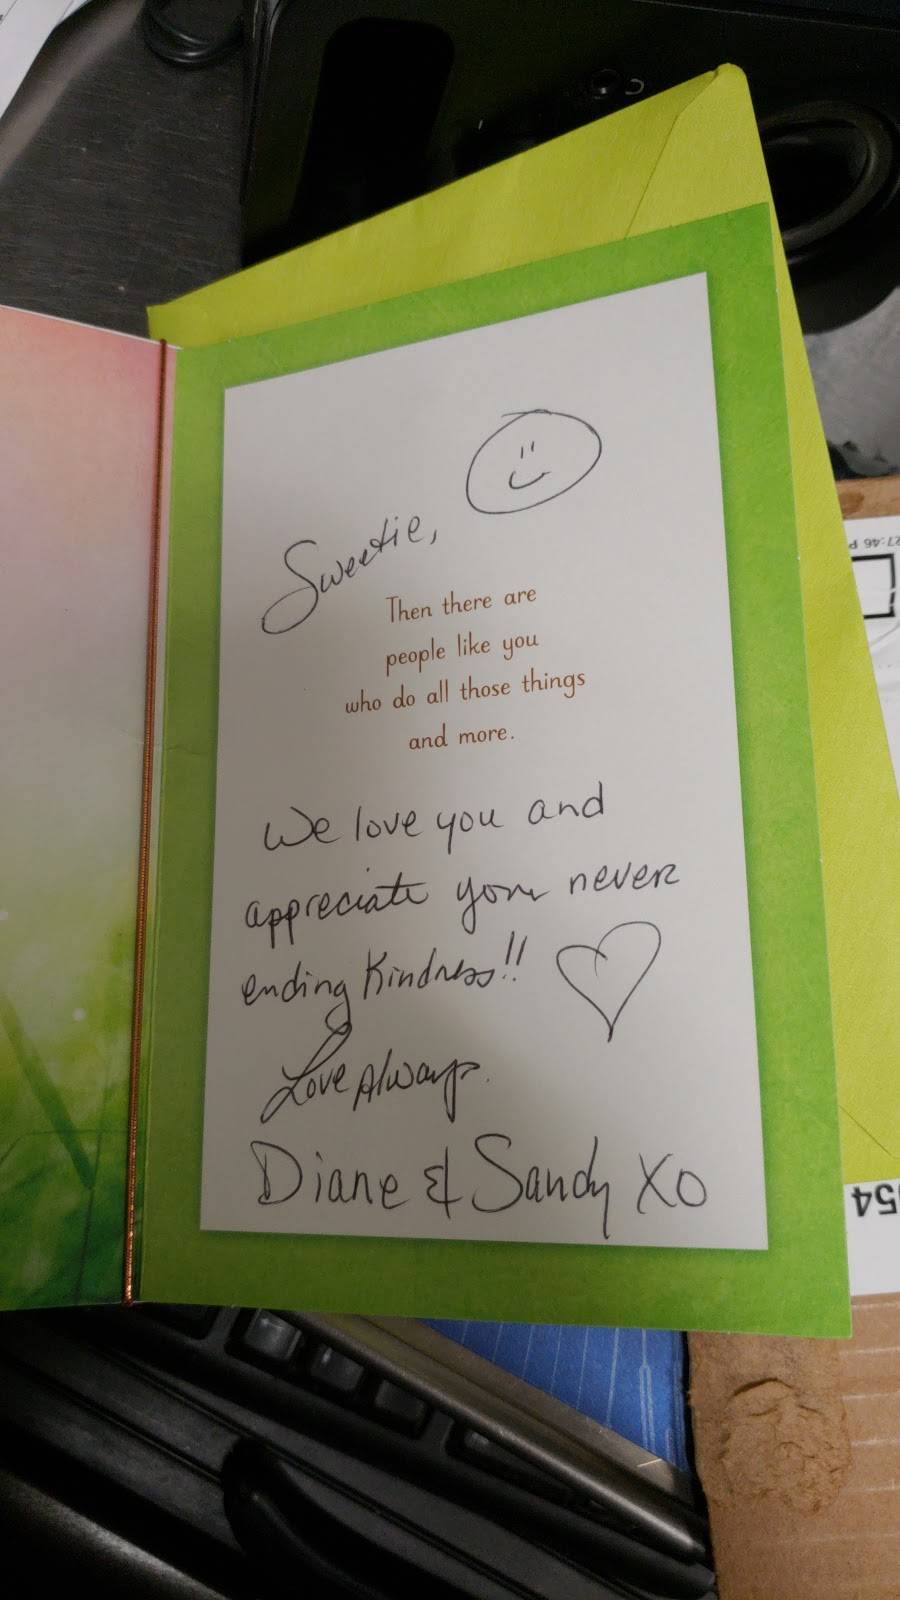 Sweetie,
Then there are
people like you
who do all those things
and more.
We love you and
appreciate your never
ending kindness!!
Love Always
Diane & Sandy XO
27:46 P
954